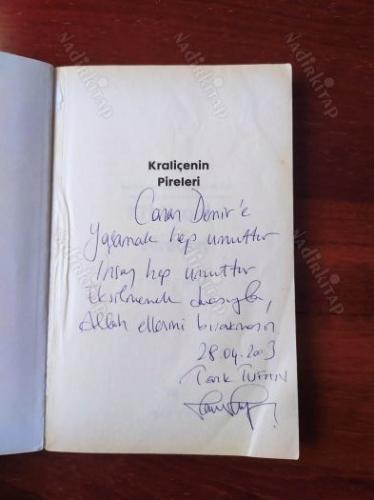 Kraliçenin
Pireleri
Canan Demir'e
Yaşamak hep umuttur
İnsan hep umuttur
Eksilmemek duasıyla,
Allah ellerini bırakmasın
28.04.2003
Tarık TUFAN
NADİRKİTAP